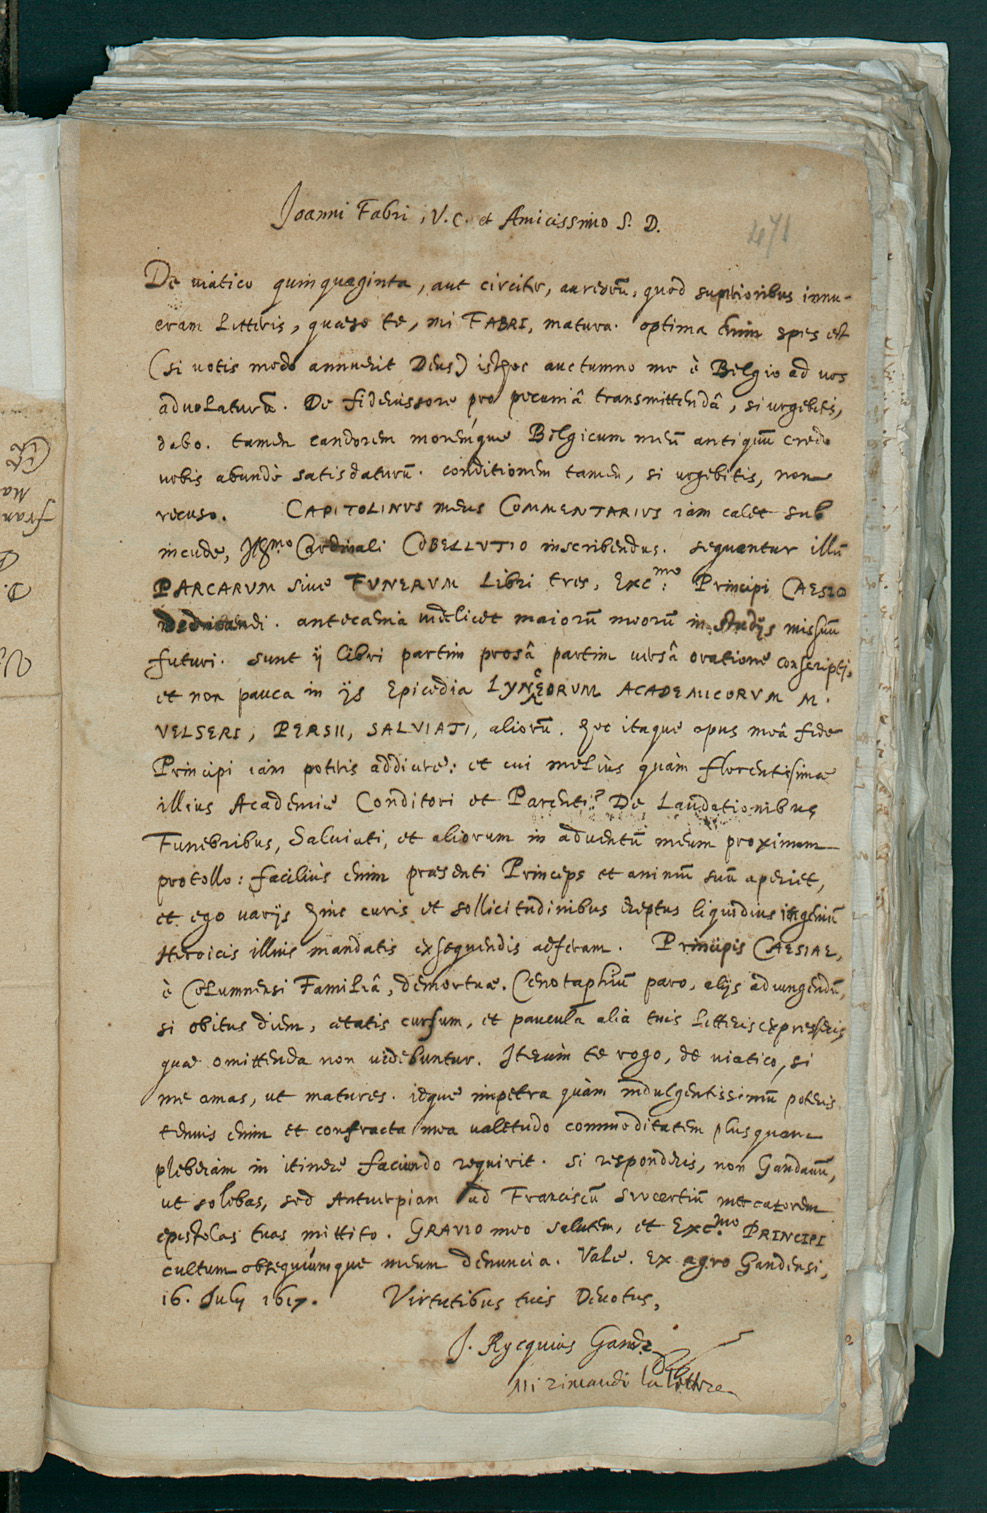 Joanni Fabri, V. C. et Amicissimo S. D.
471
De viatico quinquaginta, aut circiter, aureorū, quod superioribus innu-
eram Litteris, quaeso te, mi FABRI, matura. optima enim spes est
(si votis modo annuerit Deus) isthoc auctumno me è Belgio ad vos
advolaturū. De fideiussore pro pecuniâ transmittendâ, si urgebitis,
dabo. tamen candorem moremque Belgicum meū antiquū credo
vobis abundè satisdaturū. conditionem tamen, si urgebitis, non
recuso. CAPITOLINVS meus COMMENTARIVS iam calet sub
incude, Ill.mo Cardinali COBELLVTIO inscribendus. sequentur illū
PARCARVM sive FVNERVM Libri tres, Exc.mo Principi CAESIO
Dedicandi. antecaenia videlicet maiorū meorū in studijs missuū
futuri. sunt ij libri partim prosâ partim versâ oratione conscripti,
et non pauca in ijs Epicedia LYNCEORVM ACADEMICORVM M.
VELSERI, PERSII, SALVIATI, aliorū. hoc itaque opus meâ fide
Principi iam poteris addicere: et cui meliùs quàm florentissimae
illius Academiae Conditori et Parenti? De Laudationibus
Funebribus, Salviati, et aliorum in adventū meum proximum
protollo: faciliùs enim praesenti Princeps et animū suū aperiet,
et ego varijs hinc curis et sollicitudinibus ereptus liquidius ingeniū
Heroicis illius mandatis exsequendis adferam. Principis CAESIAE,
è Columnensi Familiâ, demortuae. Cenotaphiū paro, alijs adiungendū,
si obitus diem, aetatis cursum, et paucula alia tuis litteris expresseris,
quae omittenda non videbuntur. Iterùm te rogo, de viatico, si
me amas, ut matures. idque impetra quàm indulgentissimū poteris.
tenuis enim et confracta mea valetudo commoditatem plusquam
plebeiam in itinere faciundo requirit. Si responderis, non Gandavū,
ut solebas, sed Antverpiam ad Franciscū Swertiū mercatorem
epistolas tuas mittito. GRAVIO meo salutem, et Exc.mo PRINCIPI
cultum obsequiumque meum denuncia. Vale. Ex agro Gandensi,
16. July 1617. Virtutibus tuis Devotus,
J. Rycquius Gand.
Mi rimandi la lettera